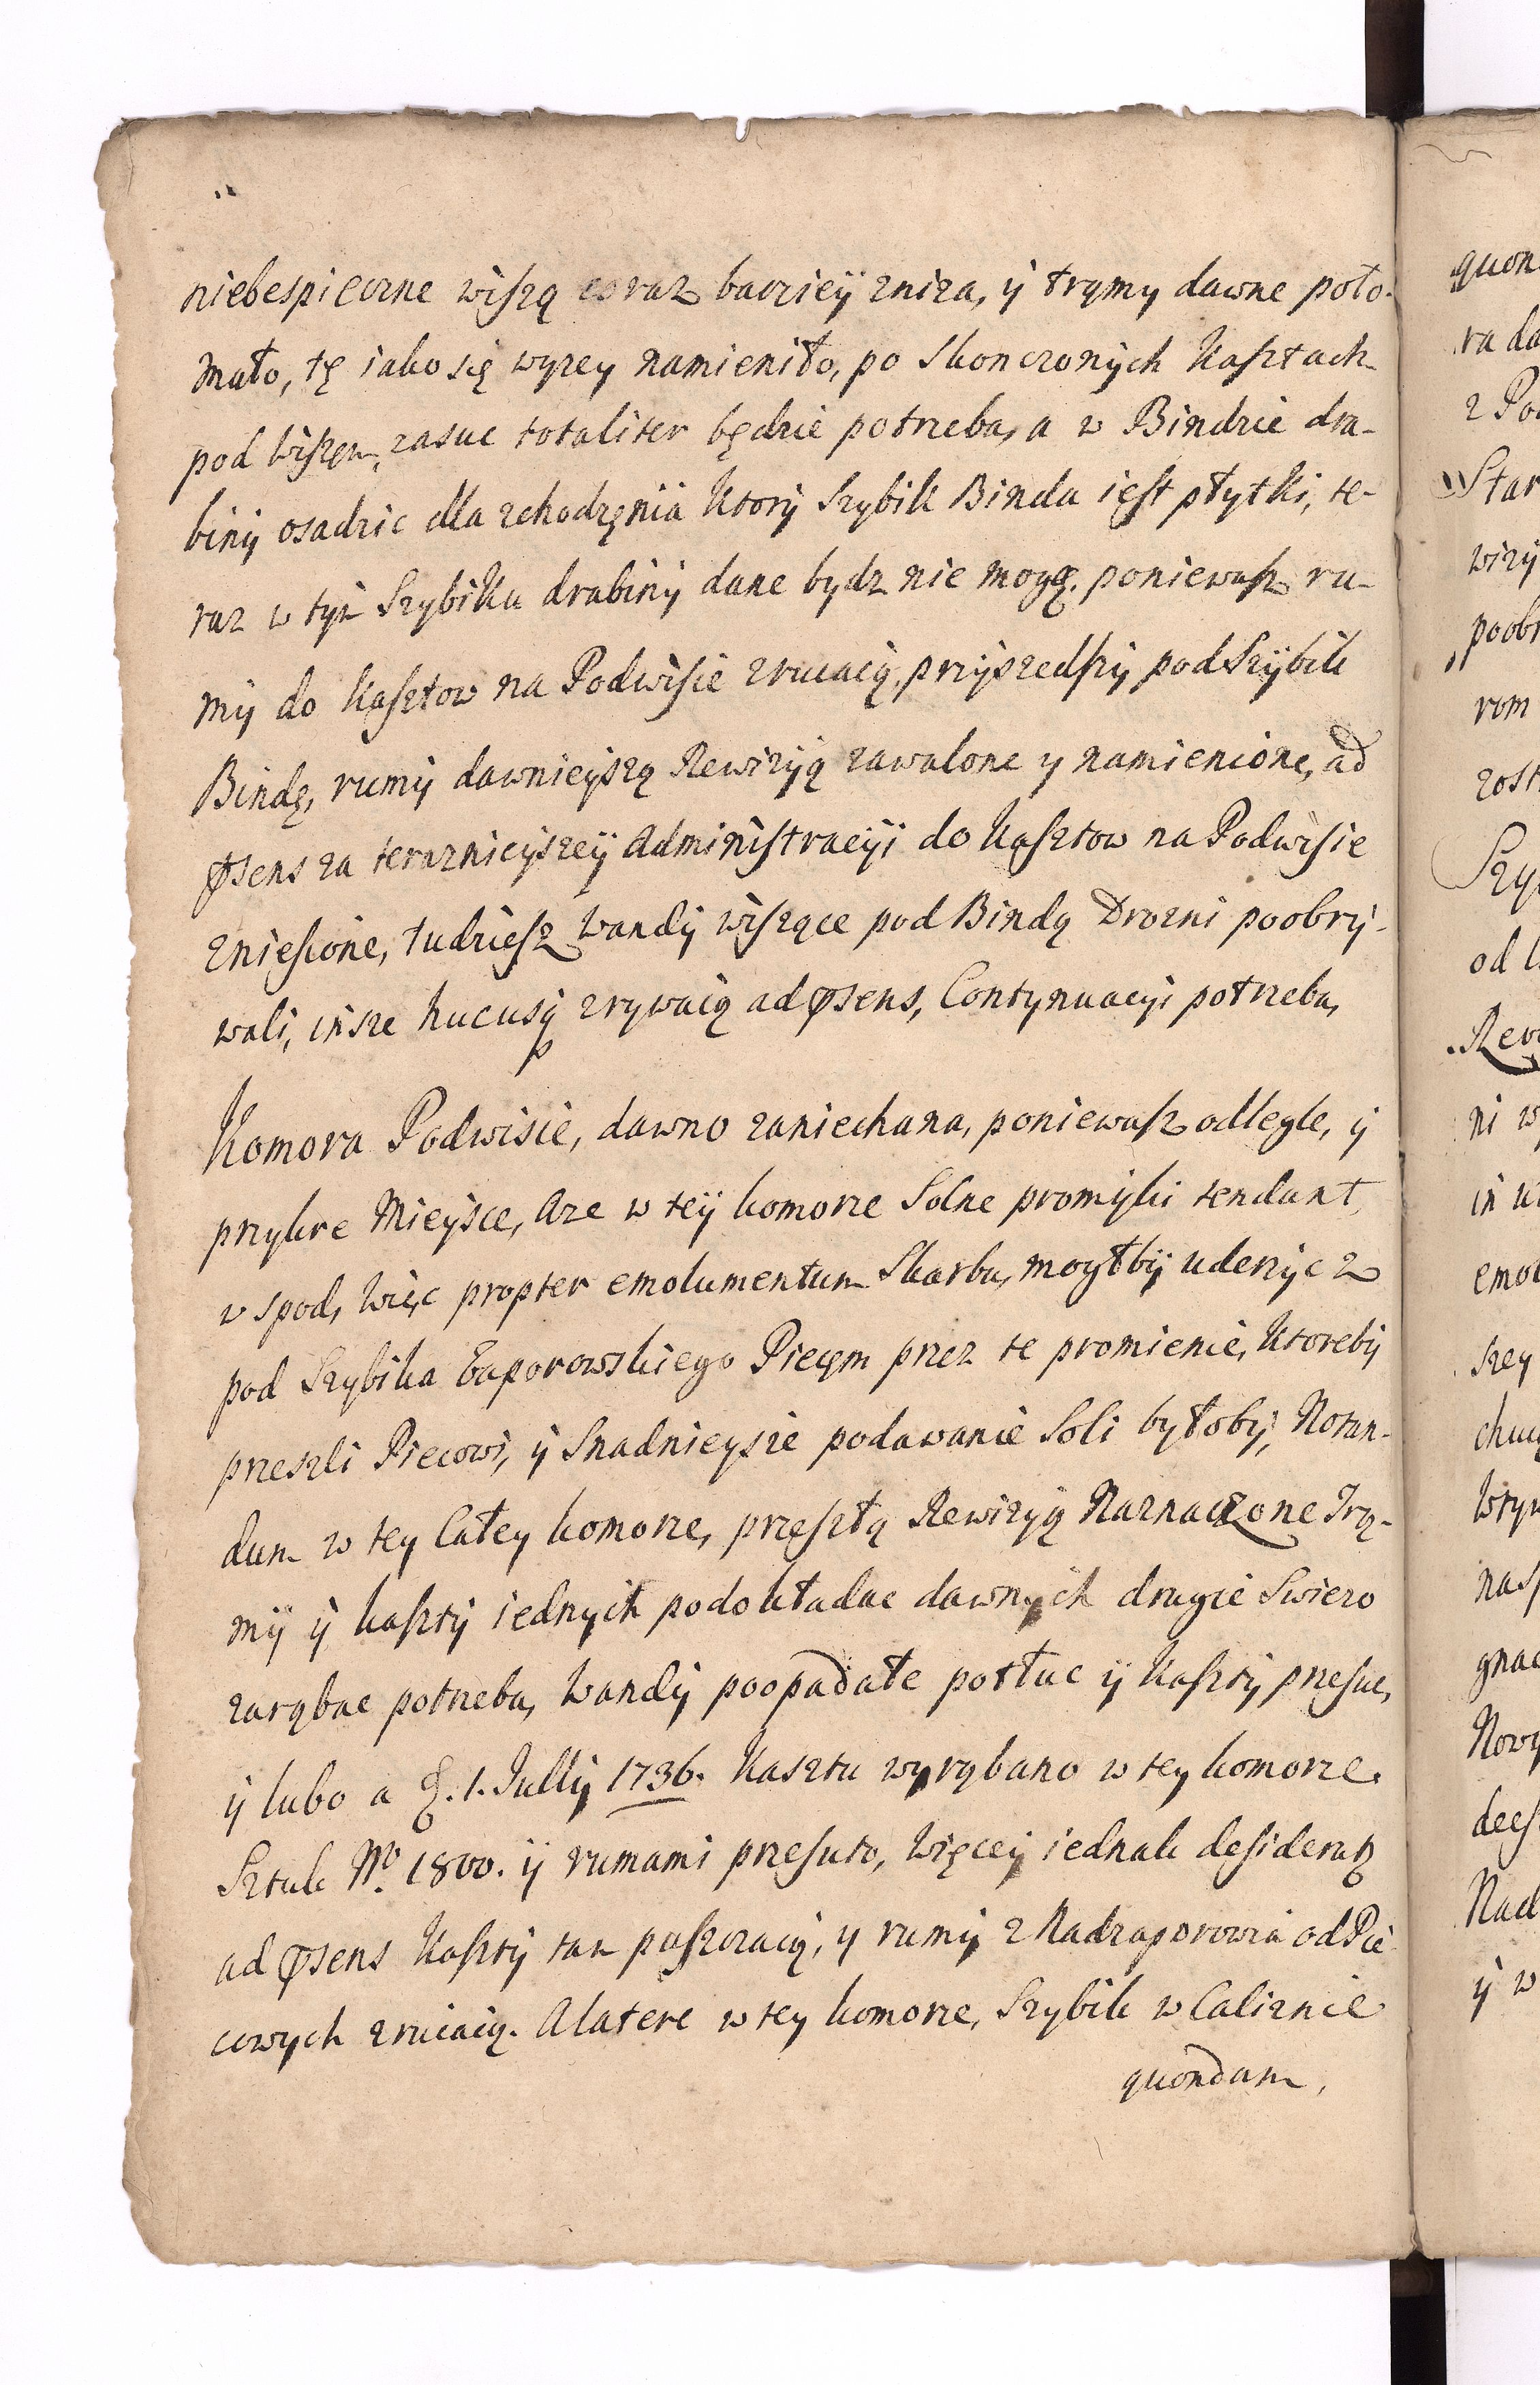 niebespieczne wiszą coraz barziey zniza, ÿ trąmy dawne poło-
mało, tę iako się wyzey namieniło, po skonczonych Kasztach
pod wiszem, zasuc totaliter będzie potrzeba, a w Bindzie dra-
biny osadzic dla zchodzęnia Ktory Szybik Binda iest płytki, te-
raz w tym Szybiku drabiny dane bydz nie mogą, poniewasz ru-
my do Kasztow na Podwisie zrucaią, przyszedszy pod Szybik
Bindę, rumy dawnieyszą Rewizyią zawalone y namienione, ad
psens za teraznieyszey Administracyi do Kasztow na Podwisie
zniesione, tudziesz Wandy wiszące pod Bindą Drozni poobry-
wali, insze hucusq zrywaią ad psens, Contynuacyi potrzeba,
Komora Podwisie, dawno zaniechana, poniewasz odległe, ÿ
przykre Mieysce, Aze w tey komorze Solne promyki tendunt
v spod, Więc propter emolumentum Skarbu, mogłby uderzyc z
pod Szybika Zaporowskiego Piecem przez te promienie, Ktoreby
przeszli Piecowi, ÿ snadnieysze podawanie Soli byłoby, Notan-
dum w tey Całey komorze, przeszłą Rewizyią Naznaczone Trą-
my ÿ kaszty iednych podokładac dawnych drugie Swiezo
zarąbac potrzeba, Wandy poopadałe potłuc ÿ Kaszty przesuc,
ÿ lubo a 1. Julij 1736. Kasztu wyrąbano w tey komorze
Sztuk No. 1800. ÿ rumami przesuto, Więcey iednak desiderat
ad psens Kaszty tam puszczaią, y rumy z Nadzaporowia od Pie-
cowych zrucaią. Alatere w tey komorze, Szybik w Caliznie
quondam,
quon
ra da
z Po
Star
wizy
poobr
rom
zost
Szy
od
Rev
ni w
in
emol
szey
nasp
gnac
Nowy
Nad
ÿ w